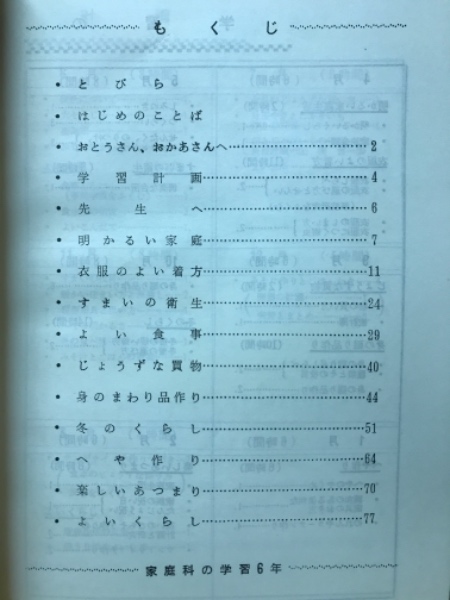 もくじ
・とびら
・はじめのことば
・おとうさん、おかあさんへ……2
・学習計画……4
・先生へ……6
・明かるい家庭……7
・衣服のよい着方……11
・すまいの衛生……24
・よい食事……29
・じょうずな買物……40
・身のまわり品作り……44
・冬のくらし……51
・へや作り……64
・楽しいあつまり……70
・よいくらし……77
家庭科の学習6年